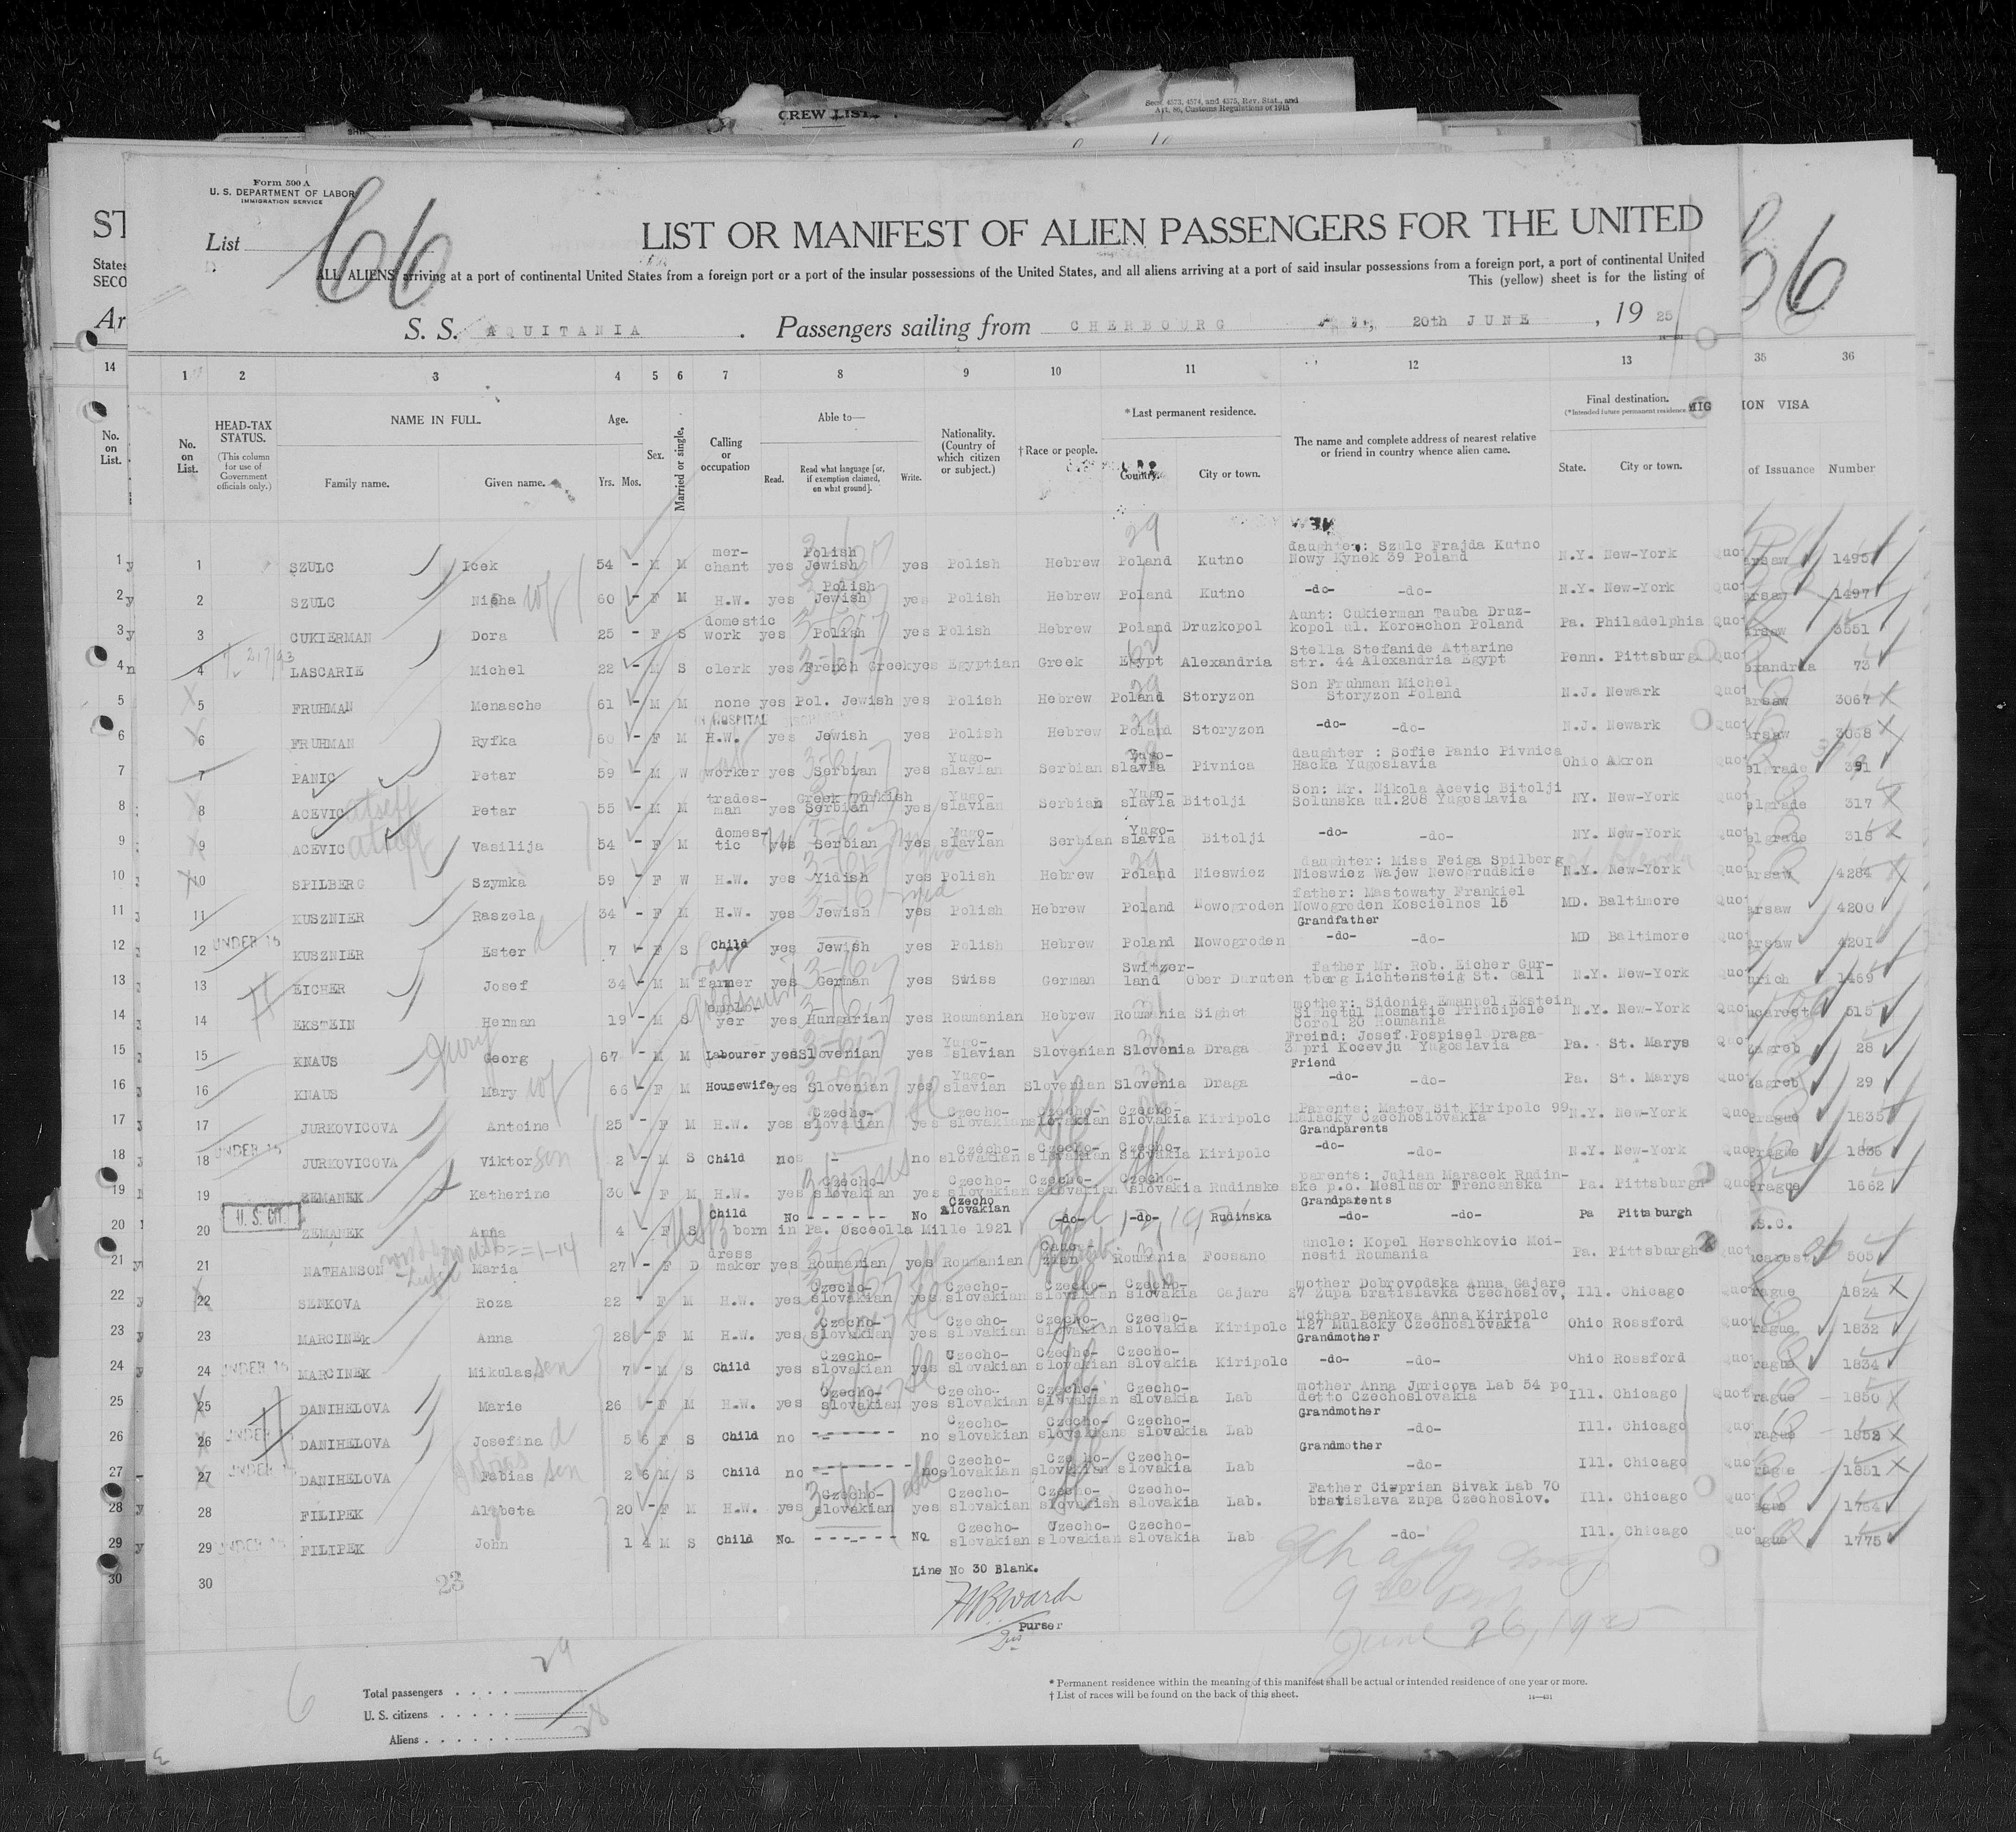 CREW LIST
Secs. 4573, 4574, and 4575, Rev. Stat., and
Art. 86, Customs Regulations of 1915
Form 500 A
U. S. DEPARTMENT OF LABOR
IMMIGRATION SERVICE
List 66
LIST OR MANIFEST OF ALIEN PASSENGERS FOR THE UNITED
ALL ALIENS arriving at a port of continental United States from a foreign port or a port of the insular possessions of the United States, and all aliens arriving at a port of said insular possessions from a foreign port, a port of continental United
This (yellow) sheet is for the listing of
S. S. AQUITANIA . Passengers sailing from CHERBOURG 20th JUNE , 19 25
1 2 3 4 5 6 7 8 9 10 11 12 13
No. on List.
HEAD-TAX STATUS.
(This column for use of Government officials only.)
NAME IN FULL.
Family name. Given name.
Age.
Yrs. Mos.
Sex.
Married or single.
Calling or occupation
Able to—
Read. Read what language [or, if exemption claimed, on what ground]. Write.
Nationality. (Country of which citizen or subject.)
† Race or people.
* Last permanent residence.
Country. City or town.
The name and complete address of nearest relative or friend in country whence alien came.
Final destination.
(* Intended future permanent residence.)
State. City or town.
35 36
ION VISA
of Issuance Number
1 SZULC Icek 54 - M M merchant yes Polish Jewish yes Polish Hebrew Poland Kutno daughter: Szulc Frajda Kutno Nowy Rynek 39 Poland N.Y. New-York 1495
2 SZULC Nisha wf 60 - F M H.W. yes Polish Jewish yes Polish Hebrew Poland Kutno -do- -do- N.Y. New-York 1497
3 CUKIERMAN Dora 25 - F S domestic work yes Polish yes Polish Hebrew Poland Druzkopol Aunt: Cukierman Tauba Druzkopol ul. Koronchon Poland Pa. Philadelphia 3551
4 LASCARIE Michel 22 - M S clerk yes French Greek yes Egyptian Greek Egypt Alexandria Stella Stefanide Attarine str. 44 Alexandria Egypt Penn. Pittsburg 73
5 FRUHMAN Menasche 61 - M M none yes Pol. Jewish yes Polish Hebrew Poland Storyzon Son Fruhman Michel Storyzon Poland N.J. Newark 3067
6 FRUHMAN Ryfka 60 - F M H.W. yes Jewish yes Polish Hebrew Poland Storyzon -do- -do- N.J. Newark 3068
7 PANIC Petar 59 - M W worker yes Serbian yes Yugo-slavian Serbian Yugo-slavia Pivnica daughter : Sofie Panic Pivnica Hacka Yugoslavia Ohio Akron
8 ACEVIC Petar 55 - M M tradesman yes Greek Turkish Serbian yes Yugo-slavian Serbian Yugo-slavia Bitolji Son: Mr. Nikola Acevic Bitolji Solunska ul.208 Yugoslavia NY. New-York 317
9 ACEVIC Vasilija 54 - F M domestic yes Serbian yes Yugo-slavian Serbian Yugo-slavia Bitolji -do- -do- NY. New-York 318
10 SPILBERG Szymka 59 - F W H.W. yes Yidish yes Polish Hebrew Poland Nieswiez daughter: Miss Feiga Spilberg Nieswiez Wajew Newogrudskie N.Y. New-York 4284
11 KUSZNIER Raszela 34 - F M H.W. yes Jewish yes Polish Hebrew Poland Nowogroden father: Mastowaty Frankiel Nowogroden Koscielnos 15 MD. Baltimore 4200
12 UNDER 16 KUSZNIER Ester d 7 - F S Child yes Jewish yes Polish Hebrew Poland Nowogroden Grandfather -do- -do- MD Baltimore 4201
13 EICHER Josef 34 - M M farmer yes German yes Swiss German Switzerland Ober Duruten father Mr. Rob. Eicher Gurtberg Lichtensteig St. Gall N.Y. New-York 1469
14 EKSTEIN Herman 19 - M S employer yes Hungarian yes Roumanian Hebrew Roumania Sighet mother: Sidonia Emanuel Ekstein Sighetul Mosmatie Principele Corol 20 Roumania N.Y. New-York 515
15 KNAUS Georg 67 - M M Labourer yes Slovenian yes Yugo-slavian Slovenian Slovenia Draga Freind: Josef Pospisel Draga 3 pri Kocevju Yugoslavia Pa. St. Marys 28
16 KNAUS Mary wf 66 - F M Housewife yes Slovenian yes Yugo-slavian Slovenian Slovenia Draga Friend -do- -do- Pa. St. Marys 29
17 JURKOVICOVA Antoine 25 - F M H.W. yes Czecho-slovakian yes Czecho-slovakian Czecho-slovakian Czecho-slovakia Kiripolc Parents: Matey Sit Kiripolc 99 Malacky Czechoslovakia N.Y. New-York 1835
18 UNDER 16 JURKOVICOVA Viktor son 2 - M S Child no - no Czecho-slovakian Czecho-slovakian Czecho-slovakia Kiripolc Grandparents -do- -do- N.Y. New-York 1836
19 ZEMANEK Katherine 30 - F M H.W. yes Czecho-slovakian yes Czecho-slovakian Czecho-slovakian Czecho-slovakia Rudinske parents: Julian Maracek Rudinske p.o. Neslusor Frencanska Pa. Pittsburgh 1662
20 U. S. CIT. ZEMANEK Anna 4 - F S Child born in Pa. Osceolla Mills 1921 No ------ No Czecho Slovakian -do- -do- Rudinska Grandparents -do- -do- Pa Pittsburgh
21 NATHANSON Maria 27 - F D dress maker yes Roumanian yes Roumanian Roumania Focsano uncle: Kopel Herschkovic Moinesti Roumania Pa. Pittsburgh 505
22 SENKOVA Roza 22 - F M H.W. yes Czecho-slovakian yes Czecho-slovakian Czecho-slovakian Czecho-slovakia Gajare mother Dobrovodska Anna Gajare 27 Zupa bratislavka Czechoslov, Ill. Chicago 1824
23 MARCINEK Anna 28 - F M H.W. yes Czecho-slovakian yes Czecho-slovakian Czecho-slovakian Czecho-slovakia Kiripolc Mother Benkova Anna Kiripolc 127 Malacky Czechoslovakia Ohio Rossford 1832
24 UNDER 16 MARCINEK Mikulas son 7 - M S Child yes Czecho-slovakian yes Czecho-slovakian Czecho-slovakian Czecho-slovakia Kiripolc Grandmother -do- -do- Ohio Rossford 1834
25 DANIHELOVA Marie 26 - F M H.W. yes Czecho-slovakian yes Czecho-slovakian Czecho-slovakian Czecho-slovakia Lab mother Anna Juricova Lab 54 po detto Czechoslovakia Ill. Chicago 1850
26 DANIHELOVA Josefina d 5 6 F S Child no ------ no Czecho-slovakian Czecho-slovakian Czecho-slovakia Lab Grandmother -do- Ill. Chicago 1852
27 UNDER 16 DANIHELOVA Fabias son 2 6 M S Child no - no Czecho-slovakian Czecho-slovakian Czecho-slovakia Lab Grandmother -do- Ill. Chicago 1851
28 FILIPEK Alzbeta 20 - F M H.W. yes Czecho-slovakian yes Czecho-slovakian Czecho-slovakian Czecho-slovakia Lab. Father Cieprian Sivak Lab 70 bratislava zupa Czechoslov. Ill. Chicago 1764
29 UNDER 16 FILIPEK John 1 4 M S Child No ------ No Czecho-slovakian Czecho-slovakian Czecho-slovakia Lab -do- Ill. Chicago 1775
30
23
Line No 30 Blank.
Purser
June 26, 1925
Total passengers 29
U. S. citizens
Aliens 28
* Permanent residence within the meaning of this manifest shall be actual or intended residence of one year or more.
† List of races will be found on the back of this sheet.